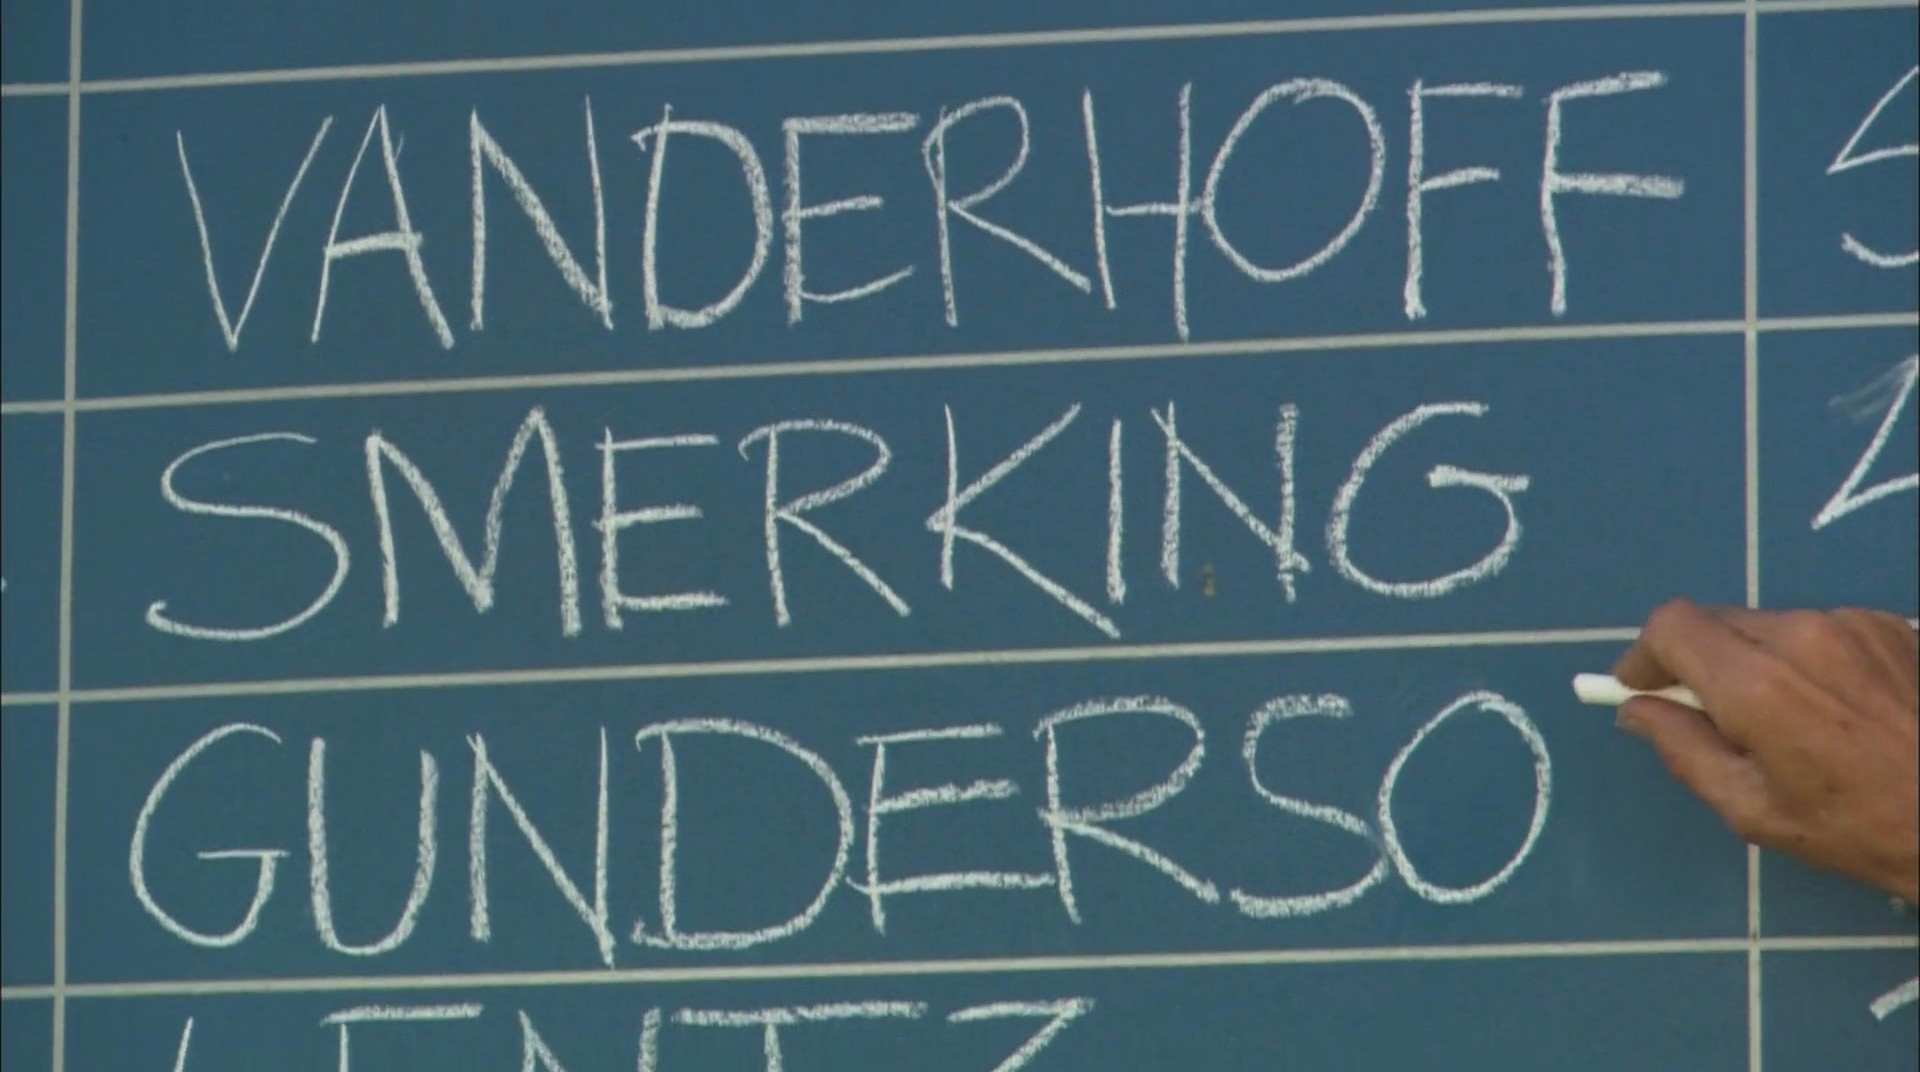 VANDERHOFF
SMERKING
GUNDERSO
LENTZ